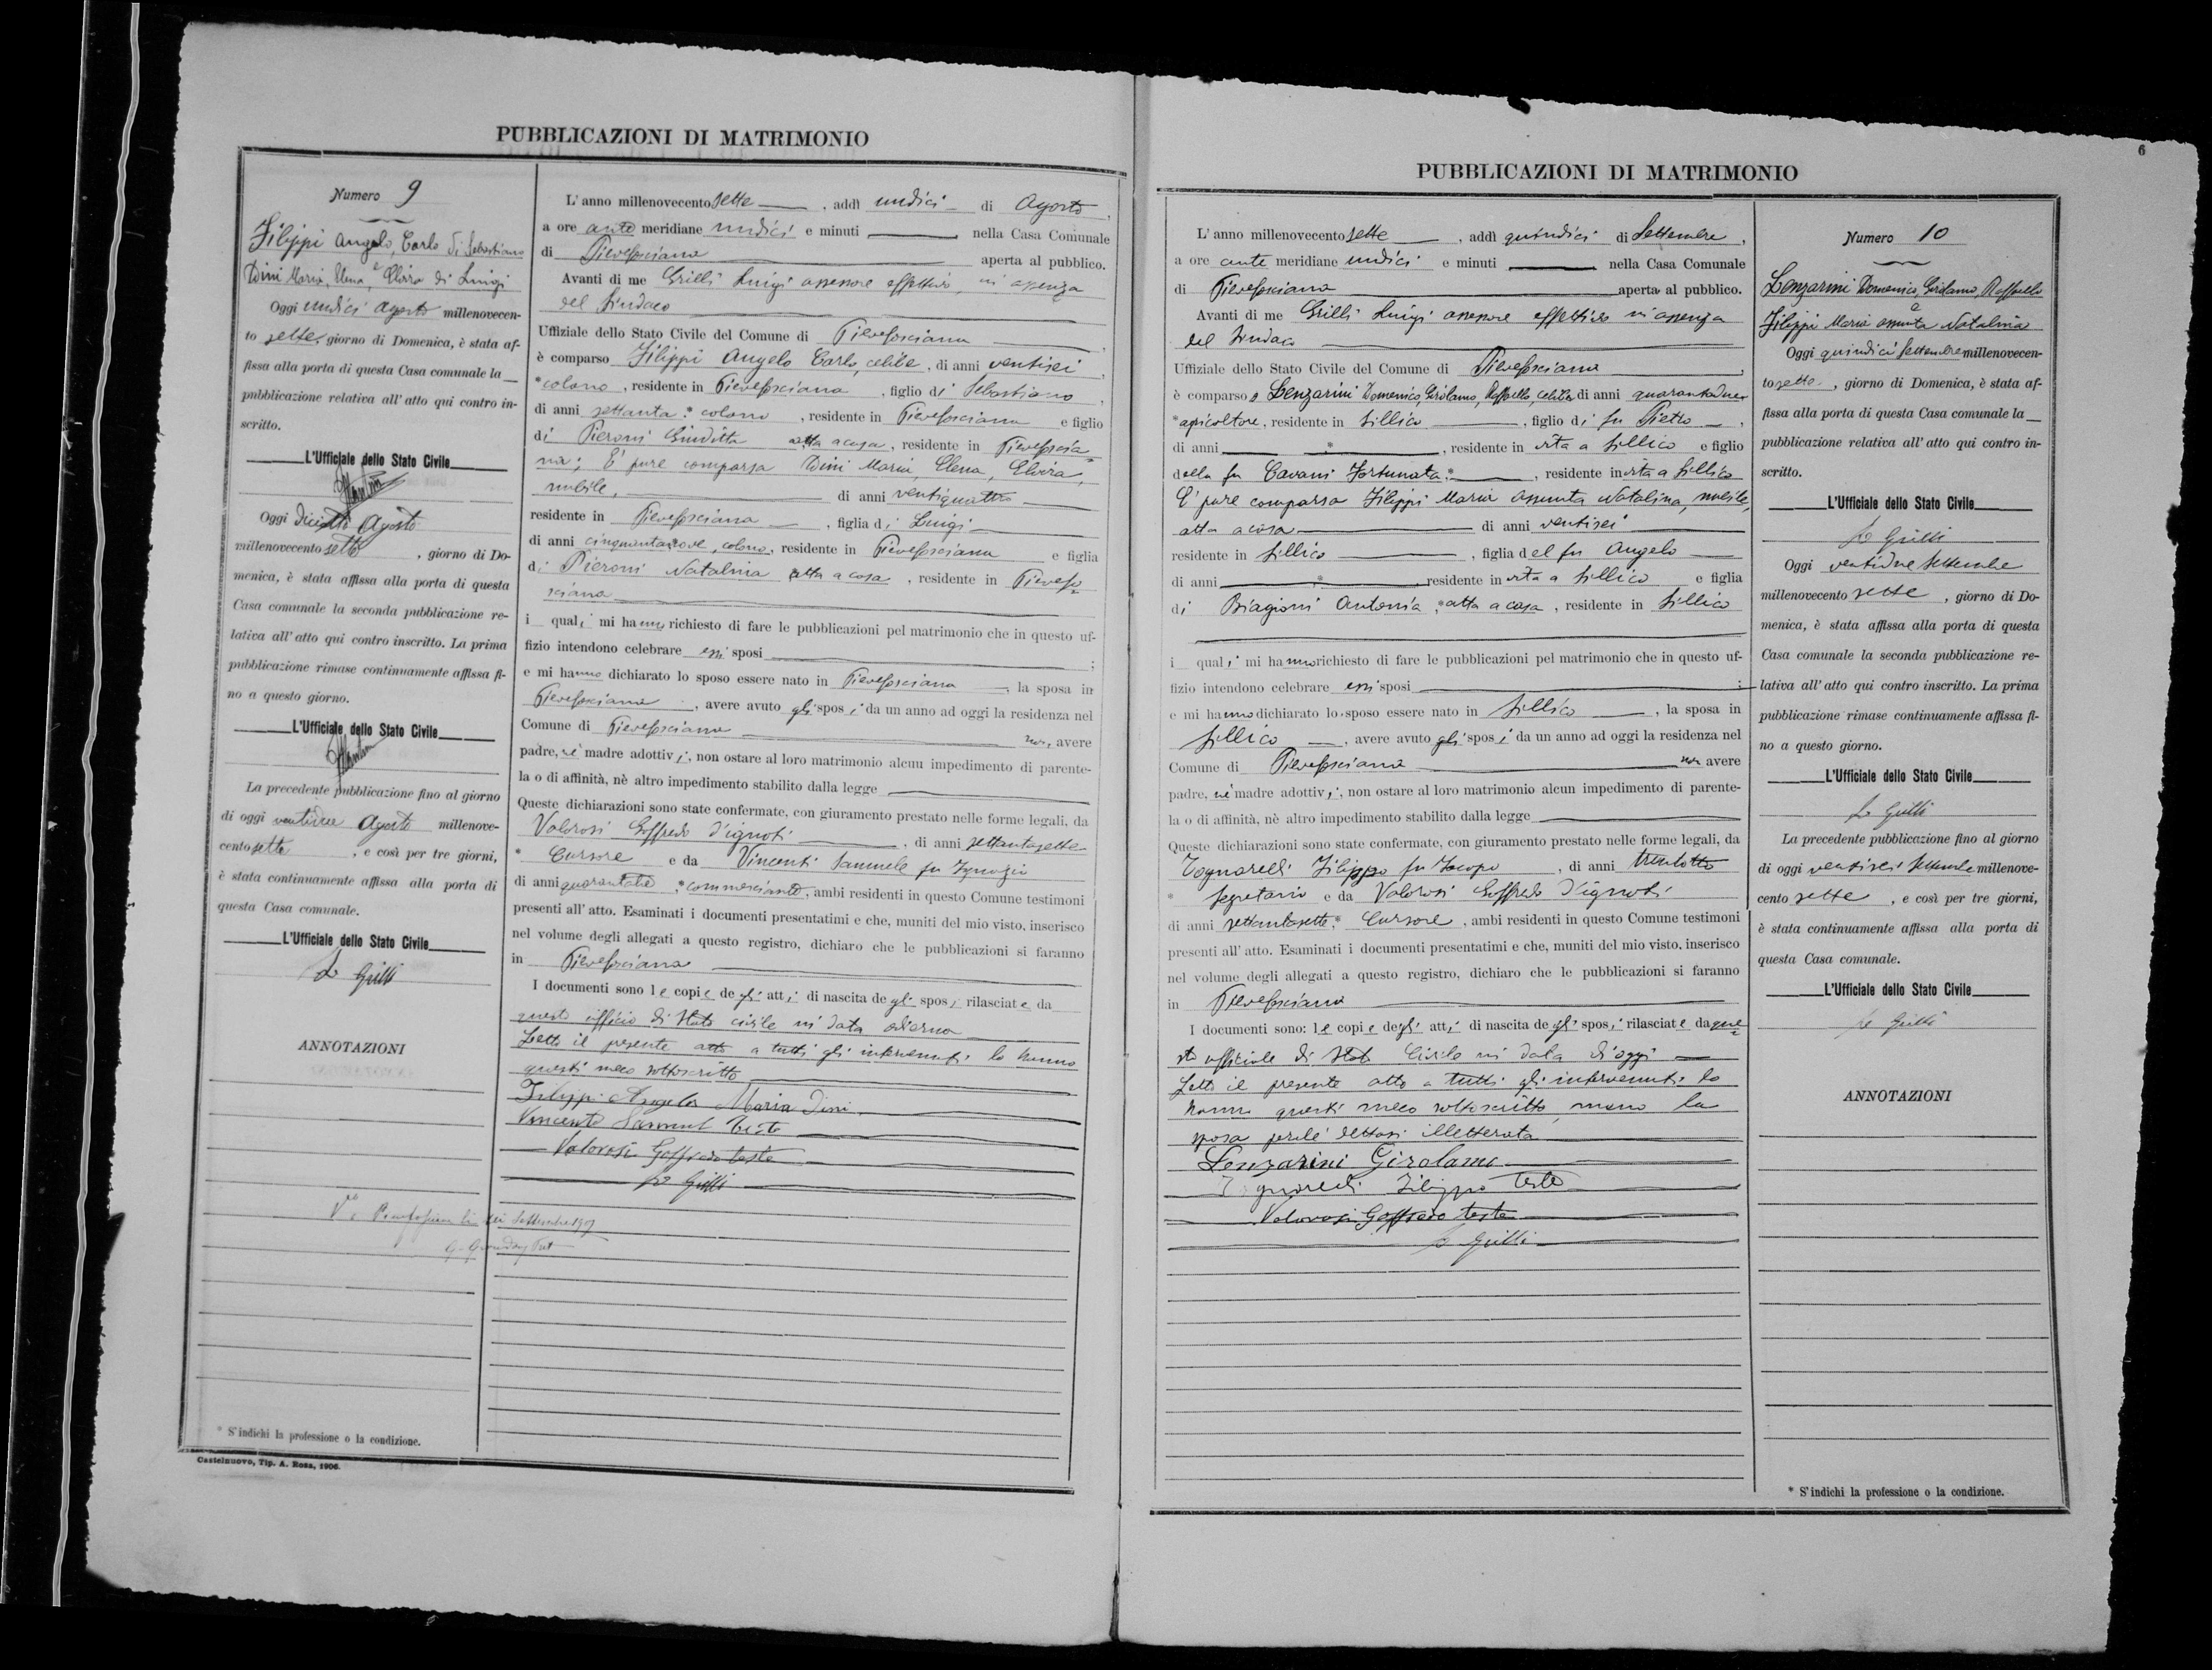 PUBBLICAZIONI DI MATRIMONIO
Numero 9
Filippi Angelo, Carlo di Sebastiano
e
Dini Maria, Elena, Elvira di Luigi
Oggi undici Agosto millenovecen-
to sette, giorno di Domenica, è stata af-
fissa alla porta di questa Casa comunale la
pubblicazione relativa all' atto qui contro in-
scritto.
L'Ufficiale dello Stato Civile
Oggi diciotto Agosto
millenovecento sette, giorno di Do-
menica, è stata affissa alla porta di questa
Casa comunale la seconda pubblicazione re-
lativa all' atto qui contro inscritto. La prima
pubblicazione rimase continuamente affissa fi-
no a questo giorno.
L'Ufficiale dello Stato Civile
La precedente pubblicazione fino al giorno
di oggi ventidue Agosto millenove-
cento sette, e così per tre giorni,
è stata continuamente affissa alla porta di
questa Casa comunale.
L'Ufficiale dello Stato Civile
L. Grilli
ANNOTAZIONI
* S' indichi la professione o la condizione.
Castelnuovo, Tip. A. Rosa, 1906.
L' anno millenovecento sette, addì undici di Agosto,
a ore ante meridiane undici e minuti nella Casa Comunale
di Pievefosciana aperta al pubblico.
Avanti di me Grilli Luigi assessore effettivo, in assenza
del Sindaco
Uffiziale dello Stato Civile del Comune di Pievefosciana
è comparso Filippi Angelo Carlo, celibe, di anni ventisei,
*colono, residente in Pievefosciana, figlio di Sebastiano,
di anni settanta * colono, residente in Pievefosciana e figlio
di Pieroni Giuditta atta a casa, residente in Pievefoscia-
na; E' pure comparsa Dini Maria, Elena, Elvira,
nubile, di anni ventiquattro
residente in Pievefosciana, figlia di Luigi
di anni cinquantanove, colono, residente in Pievefosciana e figlia
di Pieroni Natalina atta a casa, residente in Pievefo-
sciana
i quali mi hanno richiesto di fare le pubblicazioni pel matrimonio che in questo uf-
fizio intendono celebrare essi sposi;
e mi hanno dichiarato lo sposo essere nato in Pievefosciana, la sposa in
Pievefosciana, avere avuto gli sposi da un anno ad oggi la residenza nel
Comune di Pievefosciana non avere
padre, nè madre adottivi, non ostare al loro matrimonio alcun impedimento di parente-
la o di affinità, nè altro impedimento stabilito dalla legge
Queste dichiarazioni sono state confermate, con giuramento prestato nelle forme legali, da
Valorosi Goffredo d'ignoti, di anni settantasette
* Cursore e da Vincenti Samuele fu Ignazio
di anni quarantatre, * commerciante, ambi residenti in questo Comune testimoni
presenti all' atto. Esaminati i documenti presentatimi e che, muniti del mio visto, inserisco
nel volume degli allegati a questo registro, dichiaro che le pubblicazioni si faranno
in Pievefosciana
I documenti sono le copie degli atti di nascita degli sposi rilasciate da
questo ufficio di Stato civile in data odierna
Letto il presente atto a tutti gli intervenuti lo hanno
questi meco sottoscritto
Filippi Angelo Maria Dini
Vincenti Samuel teste
Valorosi Goffredo teste
L. Grilli
6
PUBBLICAZIONI DI MATRIMONIO
L' anno millenovecento sette, addì quindici di Settembre,
a ore ante meridiane undici e minuti nella Casa Comunale
di Pievefosciana aperta al pubblico.
Avanti di me Grilli Luigi assessore effettivo in assenza
del Sindaco
Uffiziale dello Stato Civile del Comune di Pievefosciana,
è comparso Lenzarini Domenico, Girolamo, Raffaello, celibe di anni quarantadue
*apicoltore, residente in Sillico, figlio di fu Pietro,
di anni *, residente in vita a Sillico e figlio
della fu Cavani Fortunata *, residente in vita a Sillico
E' pure comparsa Filippi Maria Assunta Natalina, nubile,
atta a casa di anni ventisei
residente in Sillico, figlia del fu Angelo
di anni *, residente in vita a Sillico e figlia
di Biagioni Antonia, *atta a casa, residente in Sillico
i quali mi hanno richiesto di fare le pubblicazioni pel matrimonio che in questo uf-
fizio intendono celebrare essi sposi;
e mi hanno dichiarato lo sposo essere nato in Sillico, la sposa in
Sillico, avere avuto gli sposi da un anno ad oggi la residenza nel
Comune di Pievefosciana non avere
padre, nè madre adottivi, non ostare al loro matrimonio alcun impedimento di parente-
la o di affinità, nè altro impedimento stabilito dalla legge
Queste dichiarazioni sono state confermate, con giuramento prestato nelle forme legali, da
Tognarelli Filippo fu Jacopo, di anni trentotto
* Segretario e da Valorosi Goffredo d'ignoti
di anni settantasette, * Cursore, ambi residenti in questo Comune testimoni
presenti all' atto. Esaminati i documenti presentatimi e che, muniti del mio visto, inserisco
nel volume degli allegati a questo registro, dichiaro che le pubblicazioni si faranno
in Pievefosciana
I documenti sono: le copie degli atti di nascita degli sposi rilasciate da que-
sto ufficiale di Stato Civile in data d'oggi
Letto il presente atto a tutti gli intervenuti lo
hanno questi meco sottoscritto, meno la
sposa perchè dettasi illetterata
Lenzarini Girolamo
Tognarelli Filippo teste
Valorosi Goffredo teste
L. Grilli
Numero 10
Lenzarini Domenico, Girolamo, Raffaello
e
Filippi Maria Assunta Natalina
Oggi quindici Settembre millenovecen-
to sette, giorno di Domenica, è stata af-
fissa alla porta di questa Casa comunale la
pubblicazione relativa all' atto qui contro in-
scritto.
L'Ufficiale dello Stato Civile
L. Grilli
Oggi ventidue Settembre
millenovecento sette, giorno di Do-
menica, è stata affissa alla porta di questa
Casa comunale la seconda pubblicazione re-
lativa all' atto qui contro inscritto. La prima
pubblicazione rimase continuamente affissa fi-
no a questo giorno.
L'Ufficiale dello Stato Civile
L. Grilli
La precedente pubblicazione fino al giorno
di oggi ventisei Settembre millenove-
cento sette, e così per tre giorni,
è stata continuamente affissa alla porta di
questa Casa comunale.
L'Ufficiale dello Stato Civile
L. Grilli
ANNOTAZIONI
* S' indichi la professione o la condizione.